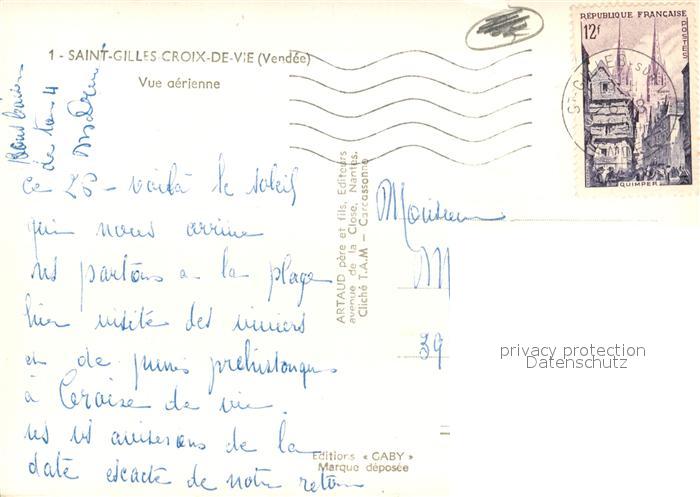 1 - SAINT-GILLES-CROIX-DE-VIE (Vendée)
Vue aérienne
RÉPUBLIQUE FRANÇAISE
12f
POSTES
QUIMPER
ST-GILLES-SUR
Bons baisers
de tous 4
ce 28 - voilà le soleil
qui nous arrive
ns partons à la plage
hier visité des viviers
et de puits préhistoriques
à Croix de vie
ns vs aviserons de la
date exacte de notre retour
ARTAUD père et fils, Editeurs
avenue de la Close, Nantes.
Cliché T.A.M - Carcassonne
Monsieur
M
39
Editions « GABY »
Marque déposée
privacy protection
Datenschutz